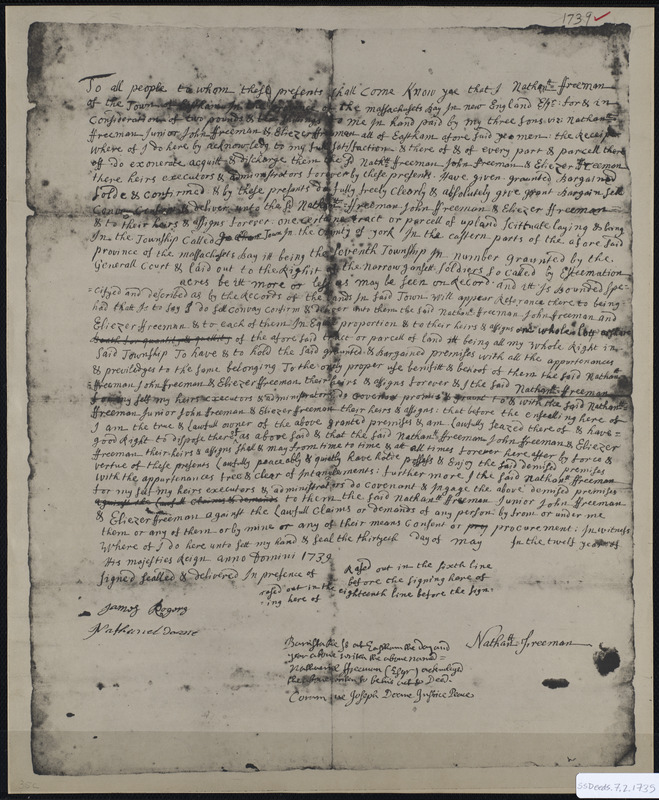 1739
To all people to whom these presents shall Come Know yee that I Nathanll ffreeman
of the Town of Eastham In the of the massachusets bay In new England Esqr for & in
Consideration of two pounds & to me In hand paid by my three sons viz: Nathanll
ffreeman Junior John ffreeman & Eliezer ffreeman all of Eastham afore said yeomen: the Receipt
where of I do here by acknowledg to my full sattisfaction & there of & of every part & parcell there
off do exonerate acquitt & discharge them the sd Nathll ffreeman John ffreeman & Eliezer ffreeman
there heirs executors & administrators forever by these presents: Have given granted Bargained
solde & confirmed & by these presents do fully freely Clearly & absolutely give grant Bargain sell
Convey Confirm & deliver unto the sd Nathanll ffreeman John ffreeman & Eliezer ffreeman
& to their heirs & assigns forever: one certain tract or parcell of upland scittuate laying & being
In the Township Called In the County of york In the eastern parts of the afore said
province of the massachusets bay it being the seventh Township In number granted by the
Generall Court & laid out to the Right of the Narrowganset Soldiers so Called by Esteemation
acres be it more or less as may be seen on Record: and it Is bounded spe-
=cifyed and described as by the Records of the Lands In said Town will appear Referance there to being
had that Is to say I do sell Convay Confirm & deliver unto them the said Nathanll ffreeman John ffreeman and
Eliezer ffreeman & to each of them In Equal proportion & to their heirs & assigns one whole lott
both for quantity & quality of the afore said tract or parcel of land it being all my whole Right in
said Township To have & to hold the said granted & bargained premises with all the apportonances
& priviledges to the same belonging To the only proper use benifitt & behoof of them the said Nathanll
ffreeman John ffreeman & Eliezer ffreeman their heirs & assigns forever & I the said Nathanll ffreeman
for my self my heirs executors & administrators do covenant promis & grant to & with the said Nathanll
ffreeman Junior John ffreeman & Eliezer ffreeman their heirs & assigns: that before the ensealing here of
I am the true & lawfull owner of the above granted premises & am lawfully seazed there of & have =
good Right to dispose thereof as above said & that the said Nathanll ffreeman John ffreeman & Eliezer
ffreeman their heirs & assigns shal & may from time to time & at all times forever here after by force &
vertue of these presents lawfully peaceably & quietly have hold possess & Enjoy the said demised premises
with the apportenances free & clear of Intanglements: further more I the said Nathanll ffreeman
for my self my heirs executors & administrators do Covenant & Ingage the above demised premises
against the lawfull claims & demands to them the said Nathanll ffreeman Junior John ffreeman
& Eliezer ffreeman against the Lawfull Claims or demands of any person: by from or under me
them or any of them or by mine or any of their means Consent or procurement: In witness
Where of I do here unto sett my hand & seal the thirtyeth day of may In the twelf year of
His majesties Reign anno Domini 1739
Signed sealled & delivered In presence of
Rased out in the sixth line
before the signing here of
rased out in the eighteenth line before the sign-
-ing here of
James Rogers
Nathaniel Doane
Nathanll ffreeman
Barnstable ss at Eastham the day and
year above writen the above named =
Nathaniel ffreeman (Esqr) acknowledged
the above writen to be his act & Deed -
Coram me Joseph Doane Justice Peace
SSDeeds.7.2.1739